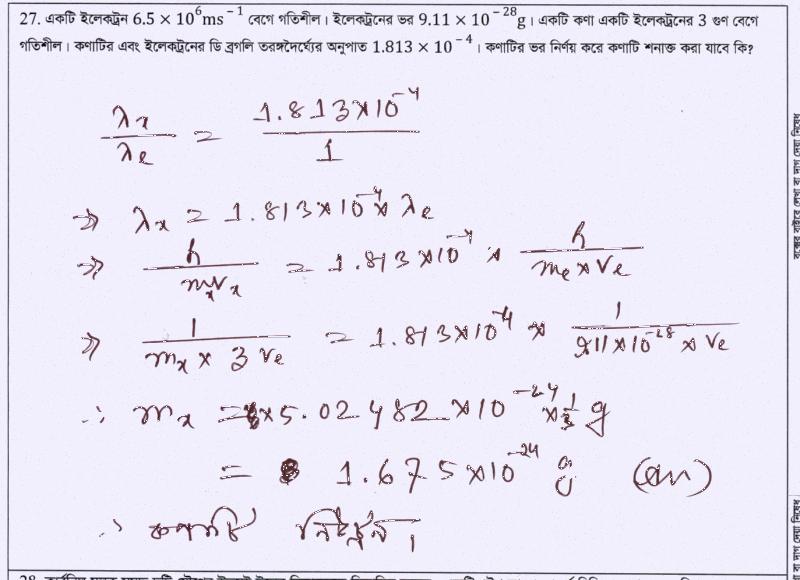 27. একটি ইলেকট্রন 6.5 × 10⁶ms⁻¹ বেগে গতিশীল। ইলেকট্রনের ভর 9.11 × 10⁻²⁸g। একটি কণা একটি ইলেকট্রনের 3 গুণ বেগে
গতিশীল। কণাটির এবং ইলেকট্রনের ডি ব্রগলি তরঙ্গদৈর্ঘ্যের অনুপাত 1.813 × 10⁻⁴। কণাটির ভর নির্ণয় করে কণাটি শনাক্ত করা যাবে কি?
λₓ / λₑ = 1.813×10⁻⁴ / 1
⇒ λₓ = 1.813×10⁻⁴ × λₑ
⇒ h / mₓvₓ = 1.813×10⁻⁴ × h / mₑ × vₑ
⇒ 1 / mₓ × 3 vₑ = 1.813×10⁻⁴ × 1 / 9.11×10⁻²⁸ × vₑ
∴ mₓ = 5.02482×10⁻²⁴ × 1/3 g
= 1.675×10⁻²⁴ g (Ans)
∴ কণাটি নিউট্রন।